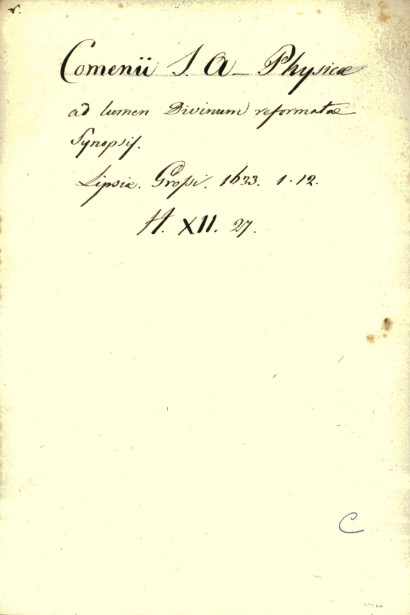 Comenii I. A. Physicae
ad lumen Divinum reformatae
Synopsis.
Lipsiæ. Grossi. 1633. 1. 12.
H. XII. 27.
C